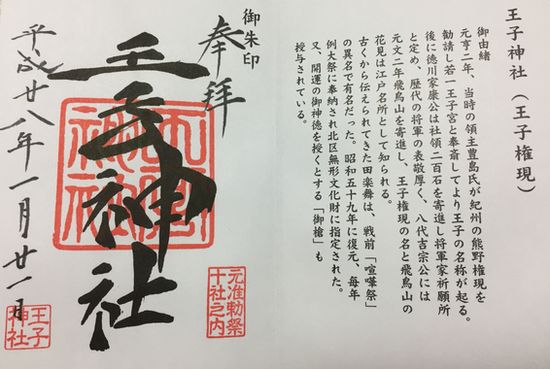 王子神社（王子権現）
御由緒
元亨二年、当時の領主豊島氏が紀州の熊野権現を
勧請し若一王子宮と奉斎してより王子の名称が起る。
後に徳川家康公は社領二百石を寄進し将軍家祈願所
と定め、歴代の将軍の表敬厚く、八代吉宗公には
元文二年飛鳥山を寄進し、王子権現の名と飛鳥山の
花見は江戸名所として知られる。
古くから伝えられてきた田楽舞は、戦前「喧嘩祭」
の異名で有名だった。昭和五十九年に復元、毎年
例大祭に奉納され北区無形文化財に指定された。
又、開運の御神徳を授くとする「御槍」も
授与されている。
御朱印
奉拝
王子神社
元准勅祭
十社之内
平成廿八年一月廿一日
王子
神社